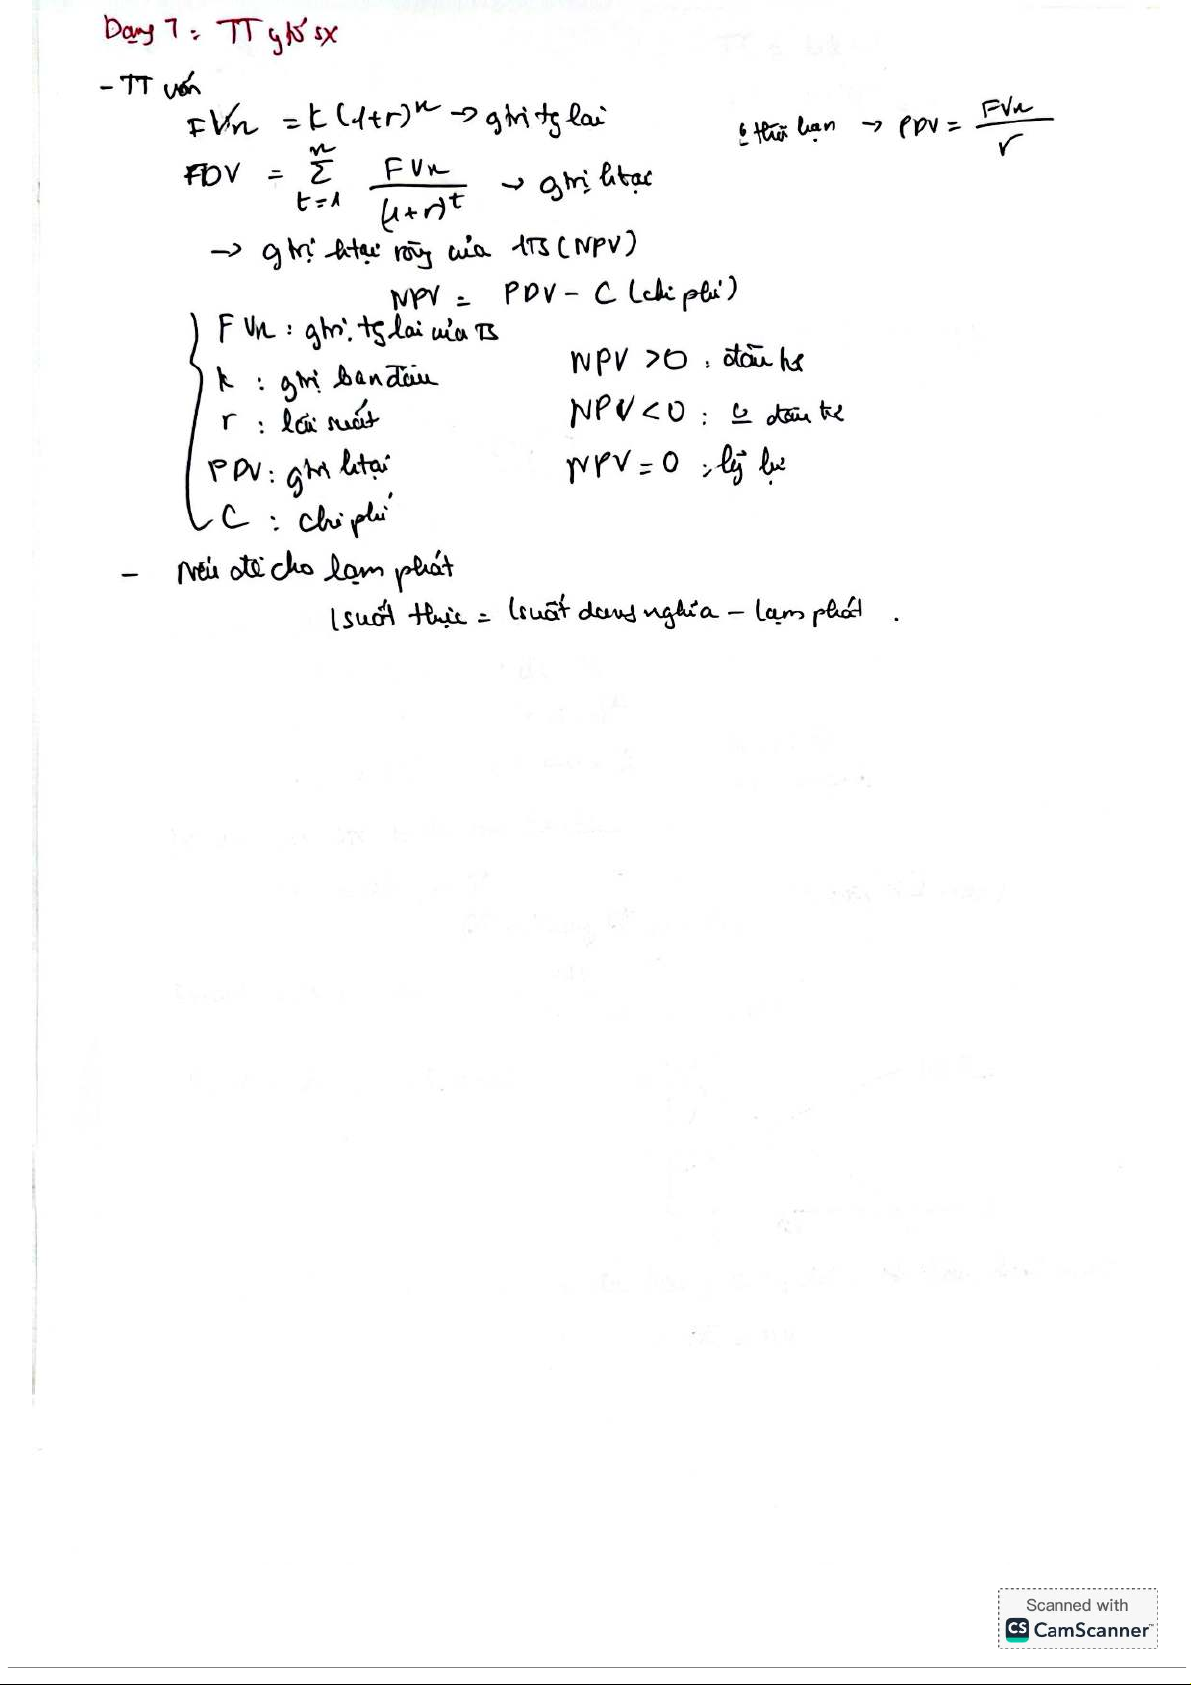 Dạng 7: TT ytố sx
- TT vốn
FVn = k(1+r)^n → gtrị tg lai
k thời hạn → PDV = FVn / r
PDV = Σ_{t=1}^{n} FVn / (1+r)^t → gtrị htại
→ gtrị htại ròng của 1TS (NPV)
NPV = PDV - C (chi phí)
FVn : gtrị tg lai của TS
k : gtrị ban đầu
NPV > 0 : đầu tư
r : lãi suất
NPV < 0 : đầu tư
PDV : gtrị htại
NPV = 0 :
C : chi phí
- Nếu đề cho lạm phát
lsuất thực = lsuất danh nghĩa - lạm phát .
Scanned with
CS CamScanner